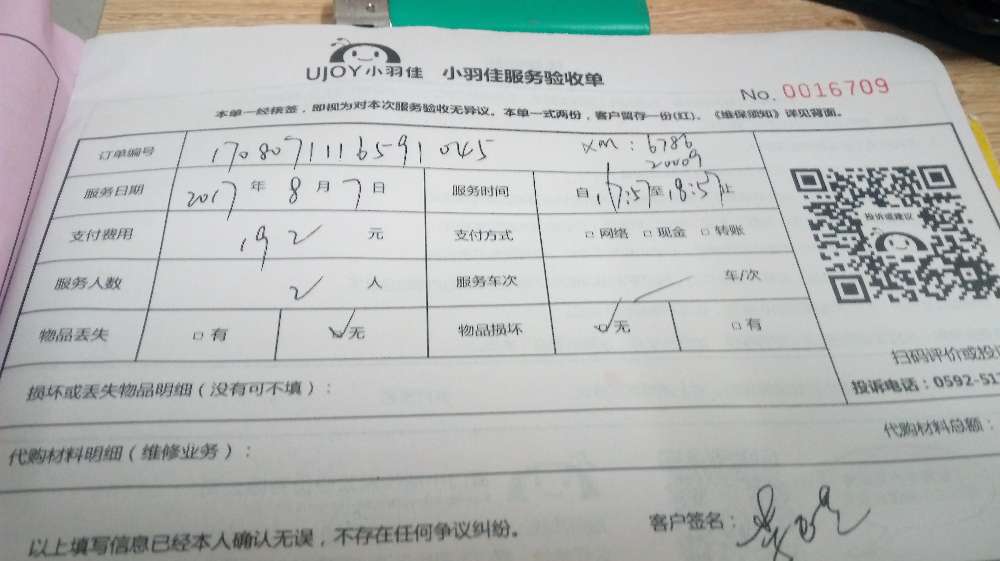 UJOY小羽佳 小羽佳服务验收单
No. 0016709
本单一经接签，即视为对本次服务验收无异议。本单一式两份，客户留存一份(红)。《维保须知》详见背面。
订单编号 1708071116591045 XM：6786
20009
服务日期 2017 年 8 月 7 日 服务时间 自 17:57 至 18:57 止
投诉或建议
支付费用 192 元 支付方式 □ 网络 □ 现金 □ 转账
服务人数 2 人 服务车次 车/次
物品丢失 □ 有 ☑ 无 物品损坏 ☑ 无 □ 有
扫码评价或投
损坏或丢失物品明细（没有可不填）：
投诉电话：0592-51
代购材料明细（维修业务）：
代购材料总额：
以上填写信息已经本人确认无误，不存在任何争议纠纷。
客户签名：